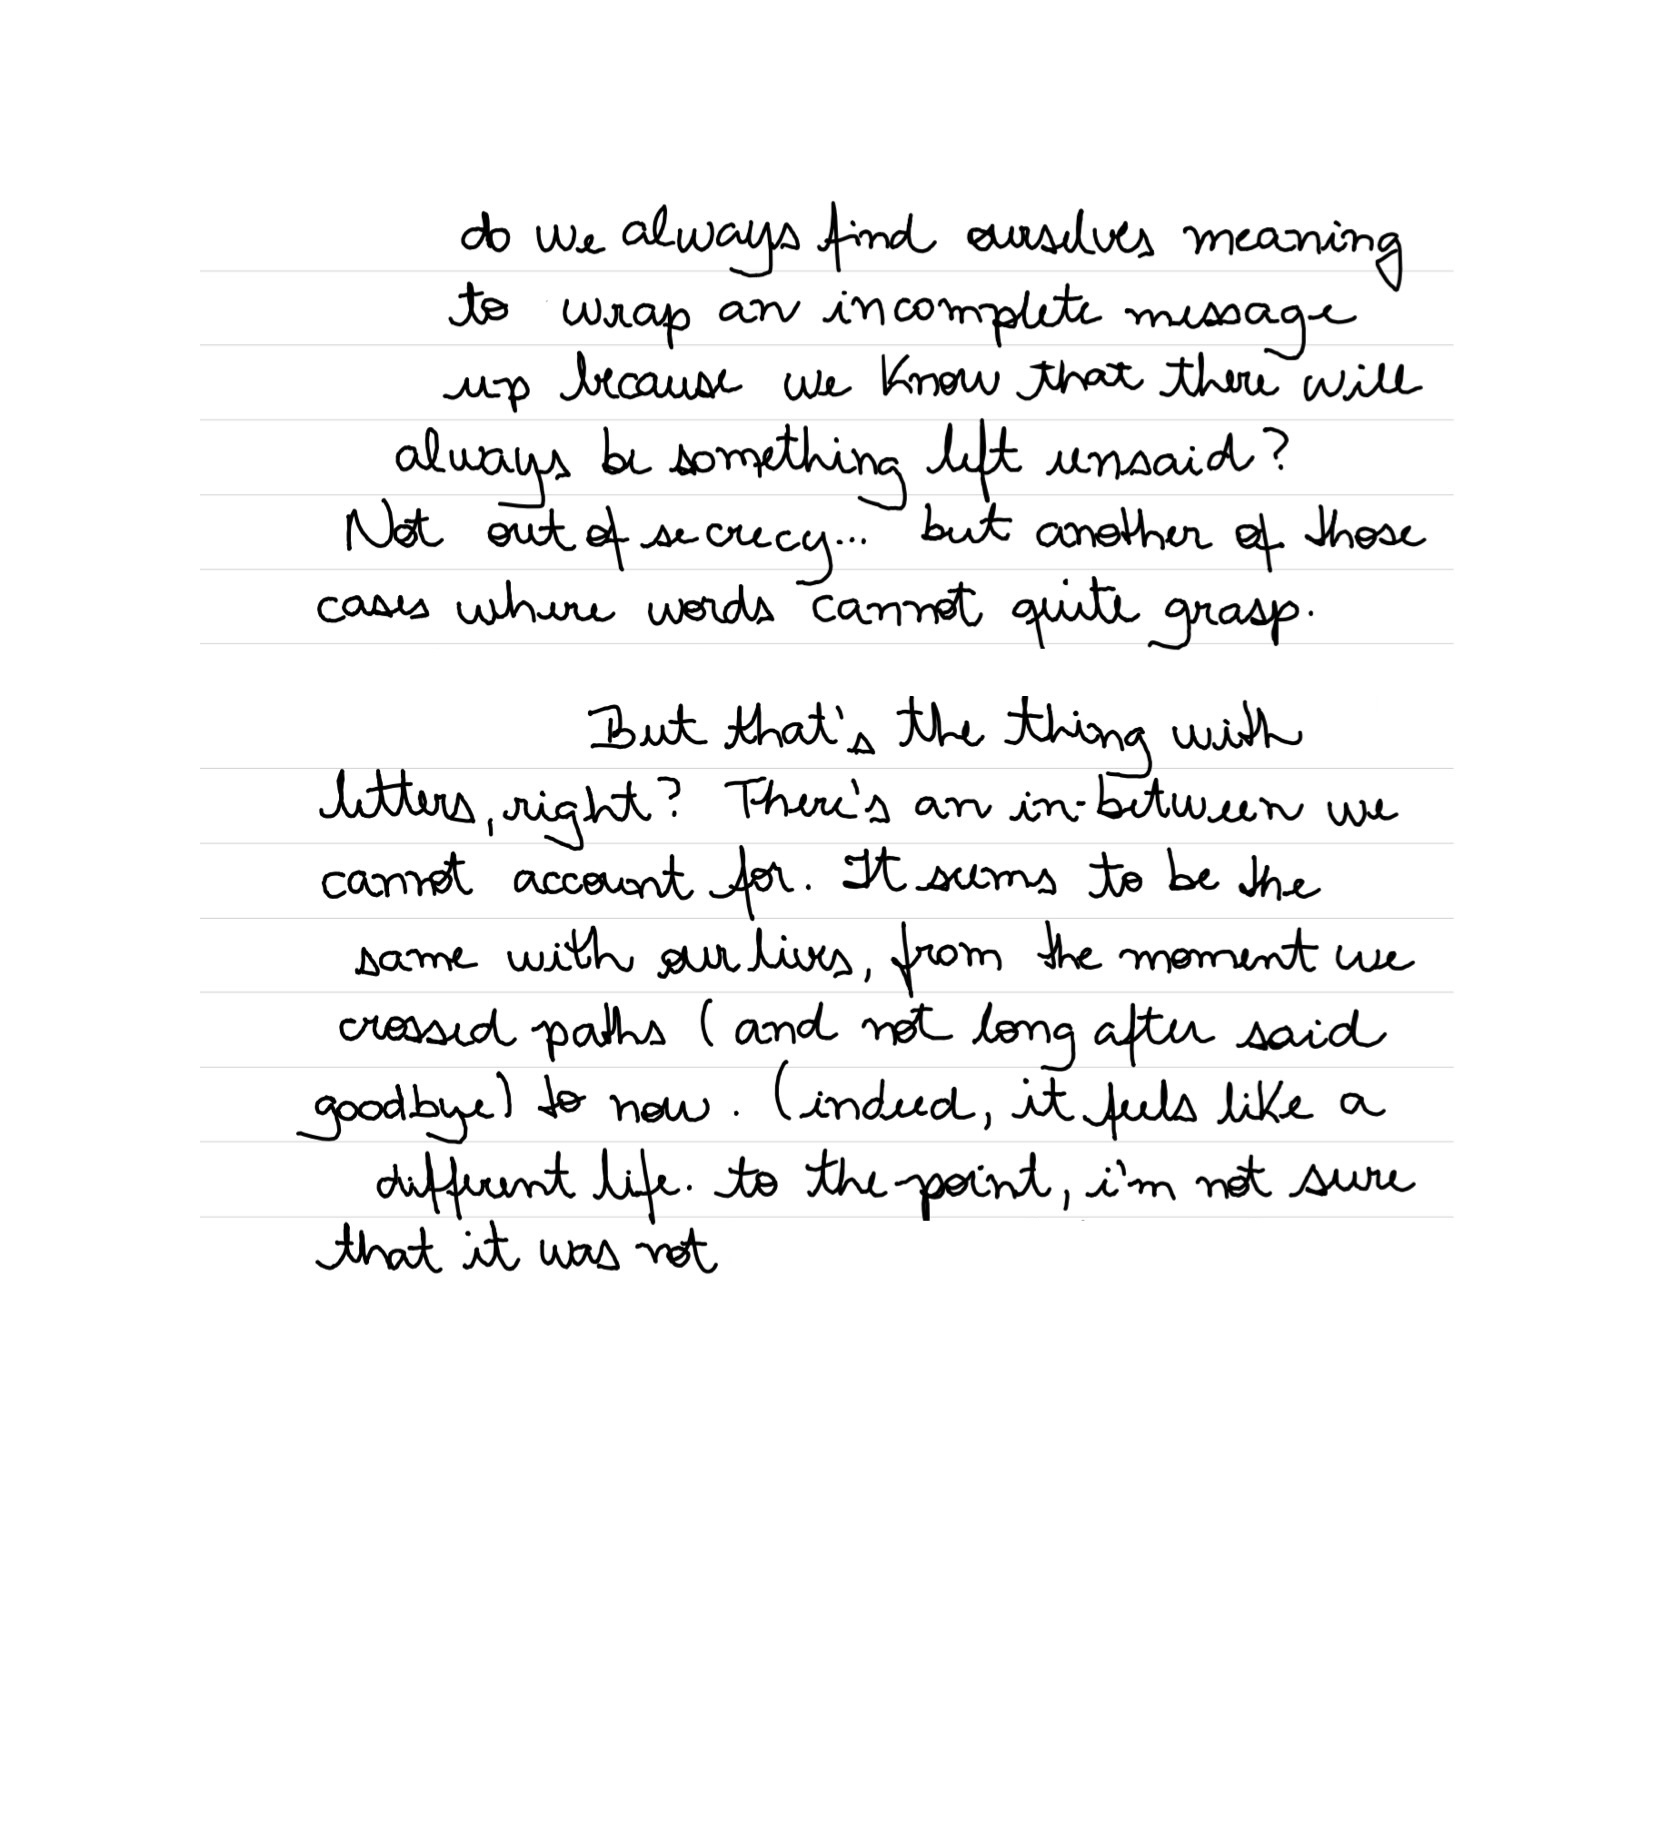 do we always find ourselves meaning
to wrap an incomplete message
up because we know that there will
always be something left unsaid?
Not out of secrecy... but another of those
cases where words cannot quite grasp.
But that's the thing with
letters, right? There's an in-between we
cannot account for. It seems to be the
same with our lives, from the moment we
crossed paths (and not long after said
goodbye) to now. (indeed, it feels like a
different life. to the point, i'm not sure
that it was not